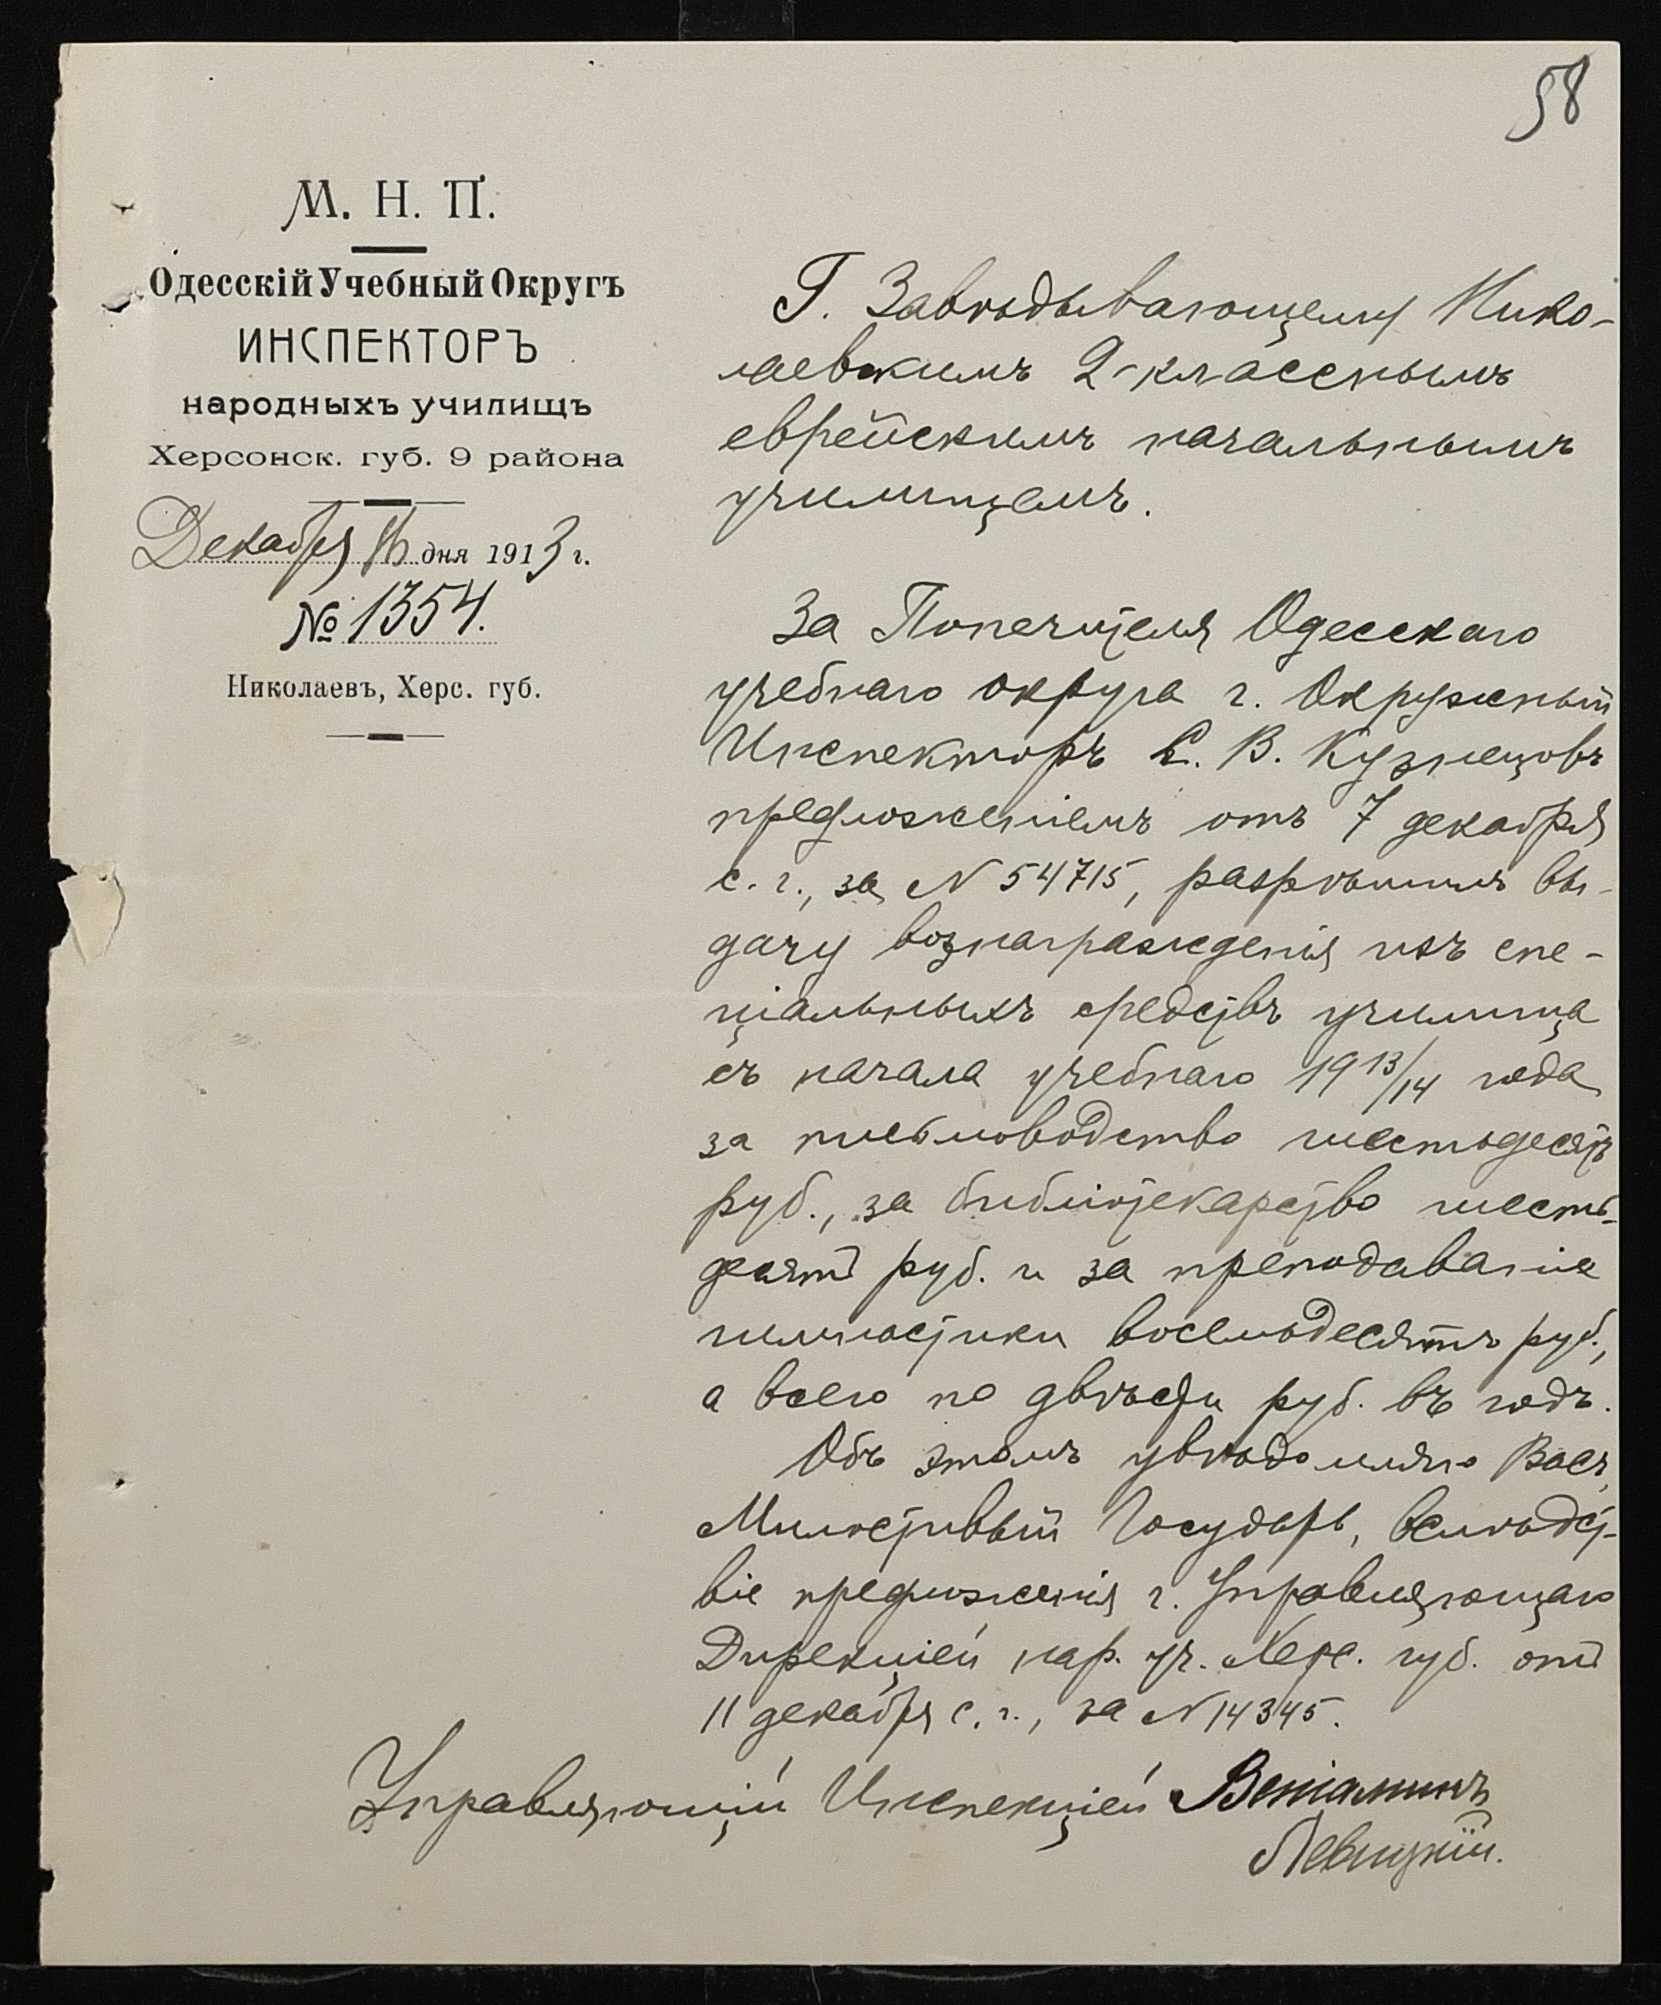 58
М. Н. П.
Одесскій Учебный Округъ
ИНСПЕКТОРЪ
народныхъ училищъ
Херсонск. губ. 9 района
Декабря 16 дня 1913 г.
№ 1354.
Николаевъ, Херс. губ.
Г. Завѣдывающему Нико-
лаевскимъ 2-класснымъ
еврейскимъ начальнымъ
училищемъ.
За Попечителя Одесскаго
учебнаго округа г. Окружный
Инспекторъ С. В. Кузнецовъ
предложеніемъ отъ 7 декабря
с. г., за N 54715, разрѣшилъ вы-
дачу вознагражденія изъ спе-
ціальныхъ средствъ училища
съ начала учебнаго 1913/14 года
за письмоводство шестьдесятъ
руб., за библіотекарство шесть-
десятъ руб. и за преподаваніе
гимнастики восемьдесятъ руб.,
а всего по двѣсти руб. въ годъ.
Объ этомъ увѣдомляю Васъ,
Милостивый Государь, вслѣдст-
віе предложенія г. Управляющаго
Дирекціей нар. уч. Херс. губ. отъ
11 декабря с. г., за N 14345.
Управляющій Инспекціей Веніаминъ
Левицкій.